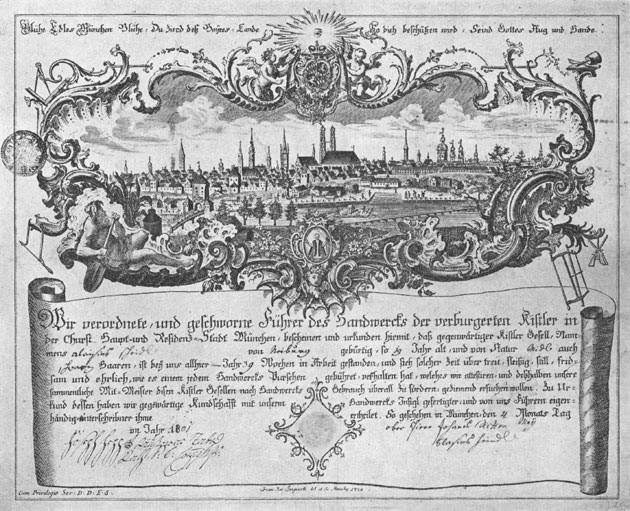 Blühe Edles München Blühe, Du wird deß Landes Gottes Aug und Hande
Wir verordnete, und geschworne Führer des Handwercks der verburgerten Kistler in
der Churfl. Haupt und Residenz Stadt München, bescheinen und urkunden hiemit, daß gegenwärtiger Kistler Gesell, Nam-
mens von gebürtig, so Jahr alt, und von Natur auch
Haaren, ist beÿ uns allhier Jahr 39 Wochen in Arbeit gestanden, und sich solcher Zeit über treu, fleißig, still, frid-
sam und ehrlich, wie es einem jedem Handwercks Purschen gebühret, verhalten hat, welches wir attestiren, und deßhalben unsere
sammentliche Mit-Meister disen Kistler Gesellen nach Handwercks Gebrauch überall zu fördern, geziemend ersuchen wollen. Zu Ur-
kund dessen haben wir gegenwärtige Kundschafft mit unserm Handwercks Insigl gefertiget, und von uns Führern eigen-
händig unterschreiben ertheilet. So geschehen in München, den 4 Monats Tag
im Jahr 1801
Cum Privilegio Ser: D: D: E: S: